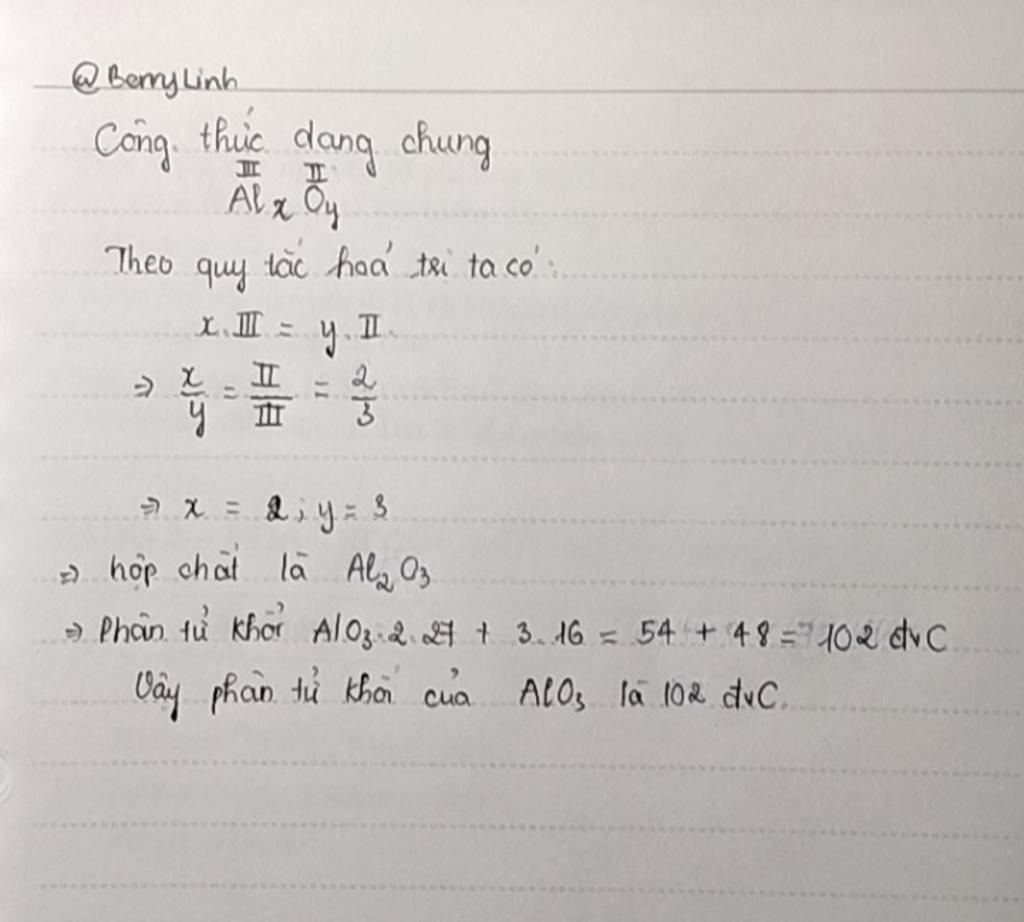 @BerryLinh
Công thức dạng chung
III II
Alx Oy
Theo quy tắc hoá trị ta có:
x. III = y. II
⇒ x/y = II/III = 2/3
⇒ x = 2; y = 3
⇒ hợp chất là Al2O3
⇒ Phân tử khối AlO3. 2. 27 + 3. 16 = 54 + 48 = 102 đvC
Vậy phân tử khối của AlO3 là 102 đvC.